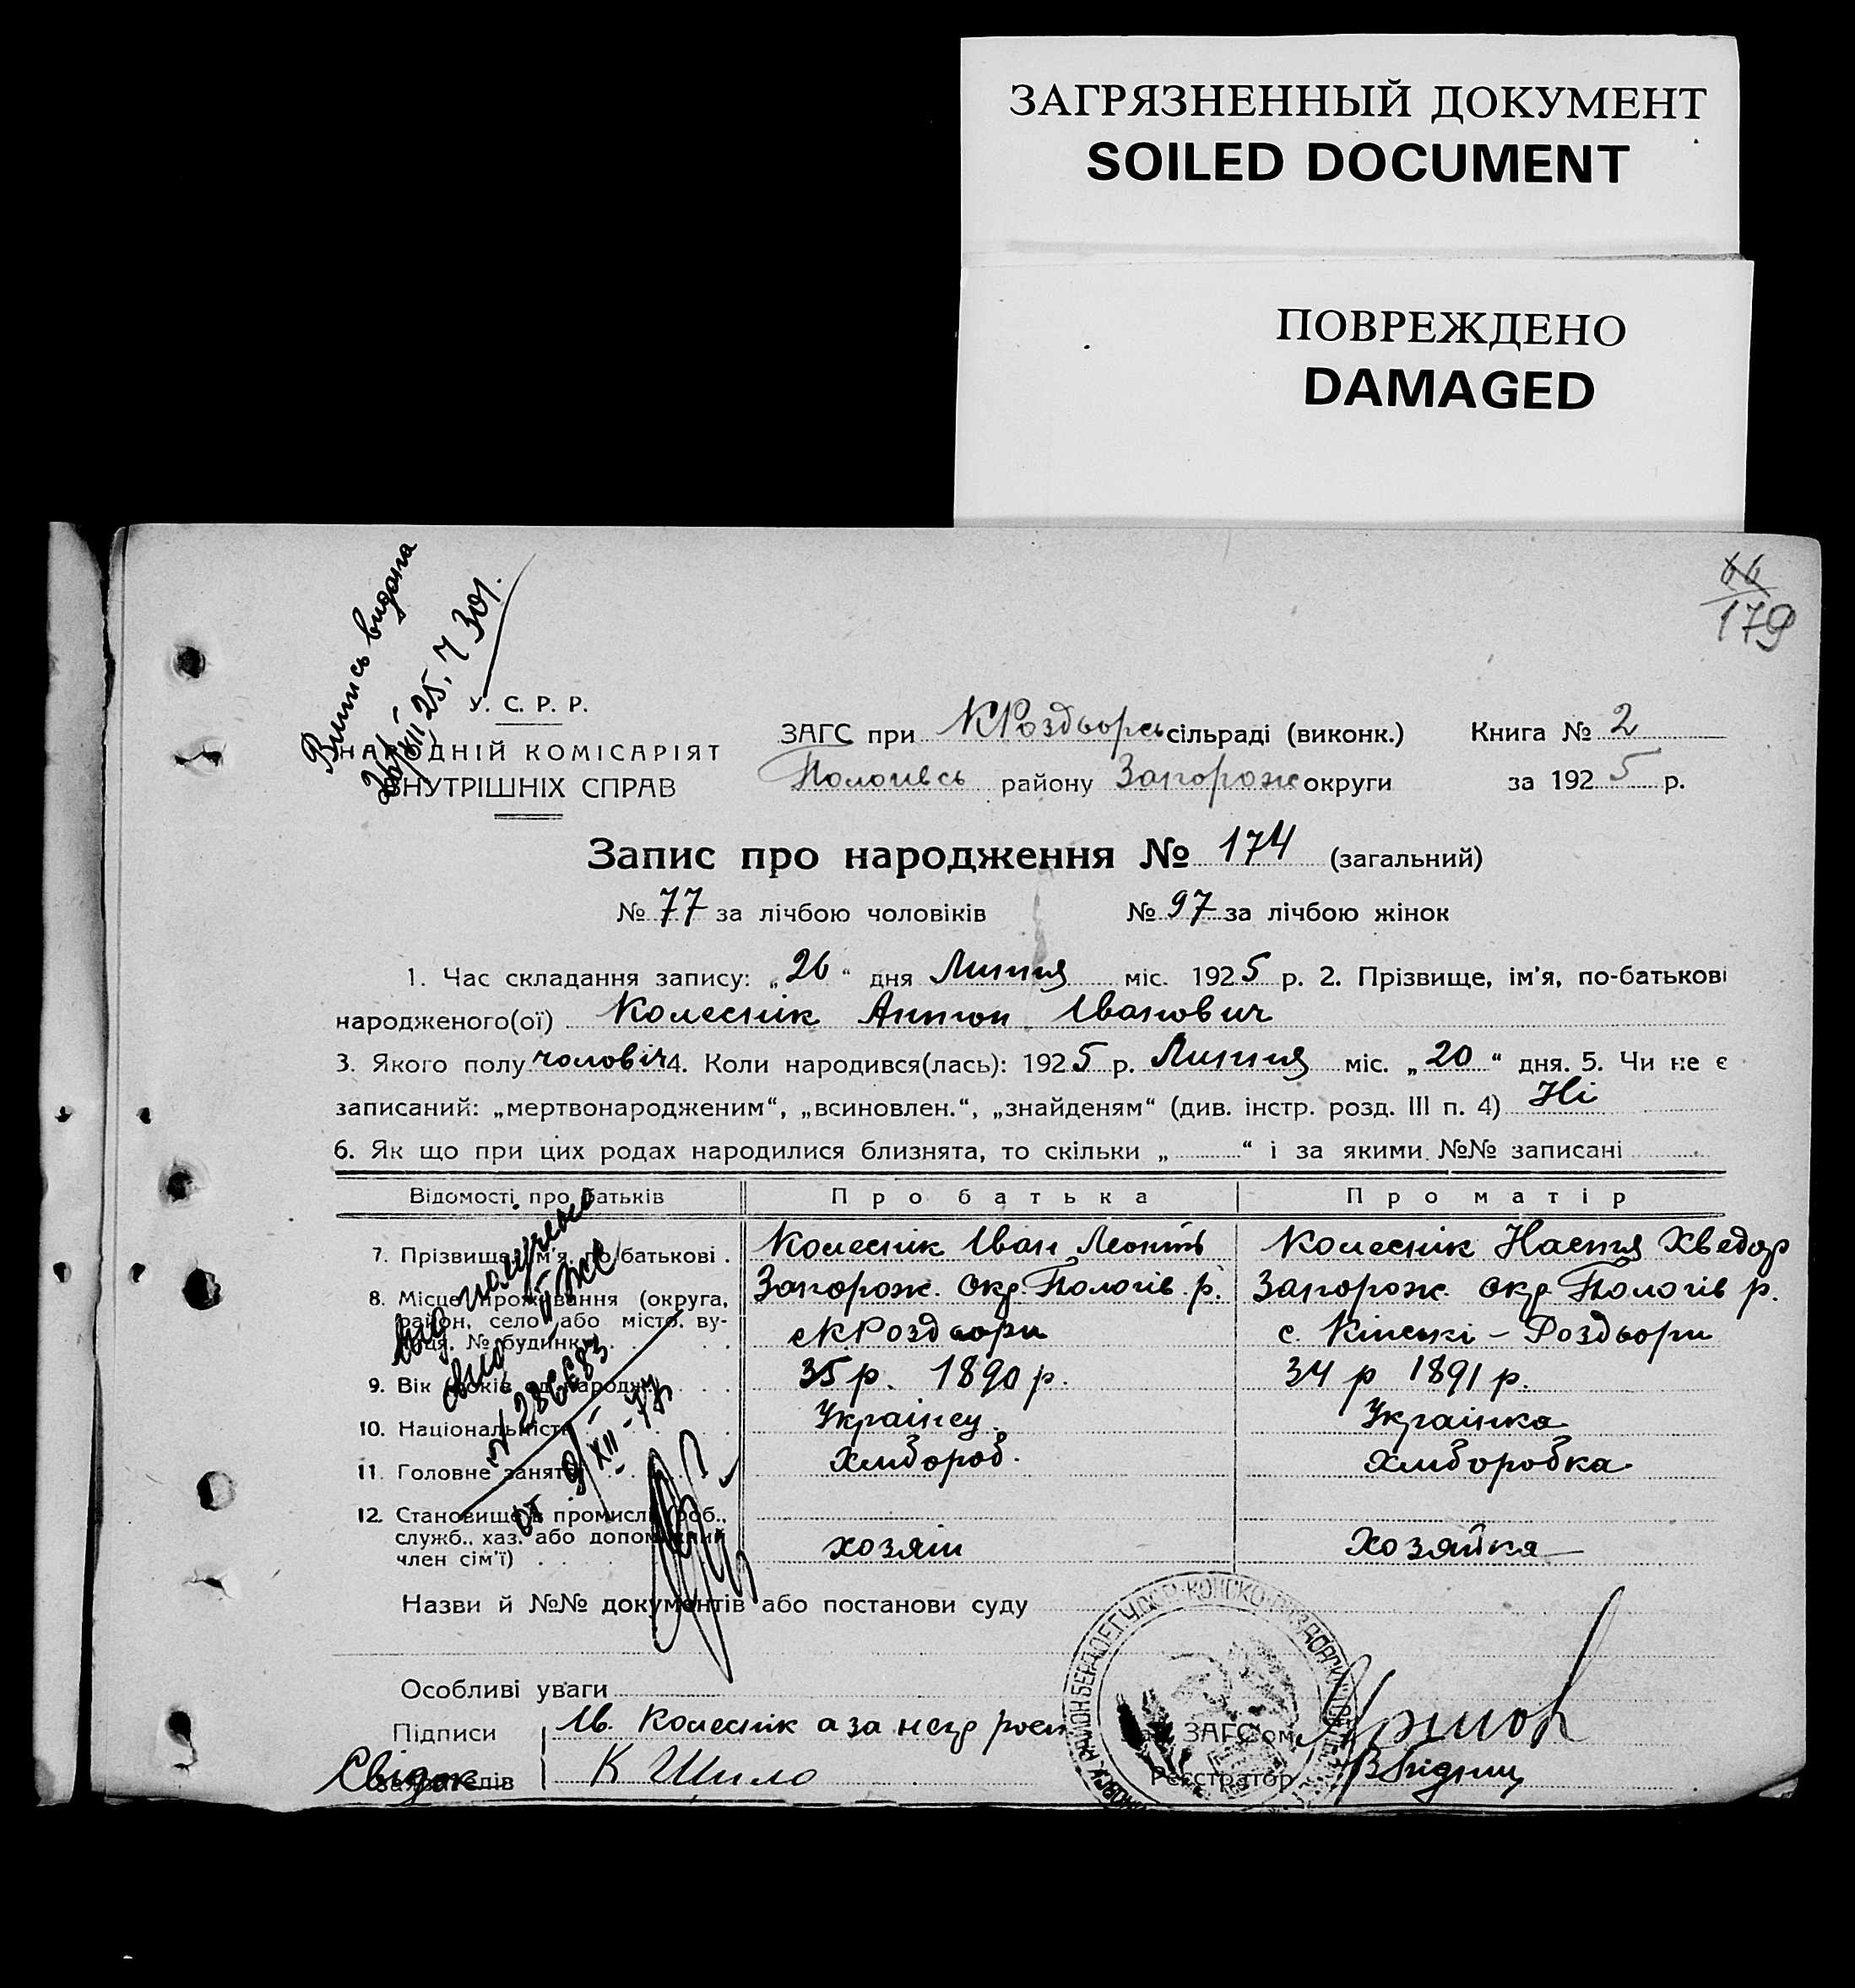 ЗАГРЯЗНЕННЫЙ ДОКУМЕНТ
SOILED DOCUMENT
ПОВРЕЖДЕНО
DAMAGED
66
179
Випись видана
26/XII 25. Ч 301.
У. С. Р. Р.
НАРОДНІЙ КОМІСАРІЯТ
ВНУТРІШНІХ СПРАВ
ЗАГС при КРоздворсь сільраді (виконк.)
Пологівсь району Запорож округи
Книга № 2
за 1925 р.
Запис про народження № 174 (загальний)
№ 77 за лічбою чоловіків № 97 за лічбою жінок
1. Час складання запису: „26“ дня Липня міс. 1925 р. 2. Прізвище, ім’я, по-батькові
народженого(ої) Колеснік Антон Іванович
3. Якого полу чоловіч 4. Коли народився(лась): 1925 р. Липня міс. „20“ дня. 5. Чи не є
записаний: „мертвонародженим“, „всиновлен.“, „знайденям“ (див. інстр. розд. III п. 4) Ні
6. Як що при цих родах народилися близнята, то скільки „ “ і за якими №№ записані
Відомості про батьків Про батька Про матір
7. Прізвище, ім’я, по батькові . Колеснік Іван Леонть Колеснік Настя Хведор
8. Місце проживання (округа, Запорож. окр. Пологів. р. Запорож. окр. Пологів р.
район, село або місто, ву- с КРоздори с. Кінські – Роздори
лиця, № будинку)
9. Вік (років, од народж.) 35 р. 1890 р. 34 р 1891 р.
10. Національність Українец. Українка
11. Головне заняття Хлибороб. Хлиборобка
12. Становище в промислі (роб.,
служб., хаз. або допоміжний хозяін Хозяйка
член сім’ї)
№ 286683
от 9/XII-77
Назви й №№ документів або постанови суду
Особливі уваги
Підписи Ів. Колеснік а за него
Свідок заявителів К Шило
ЗАГС’ом
Реєстратор